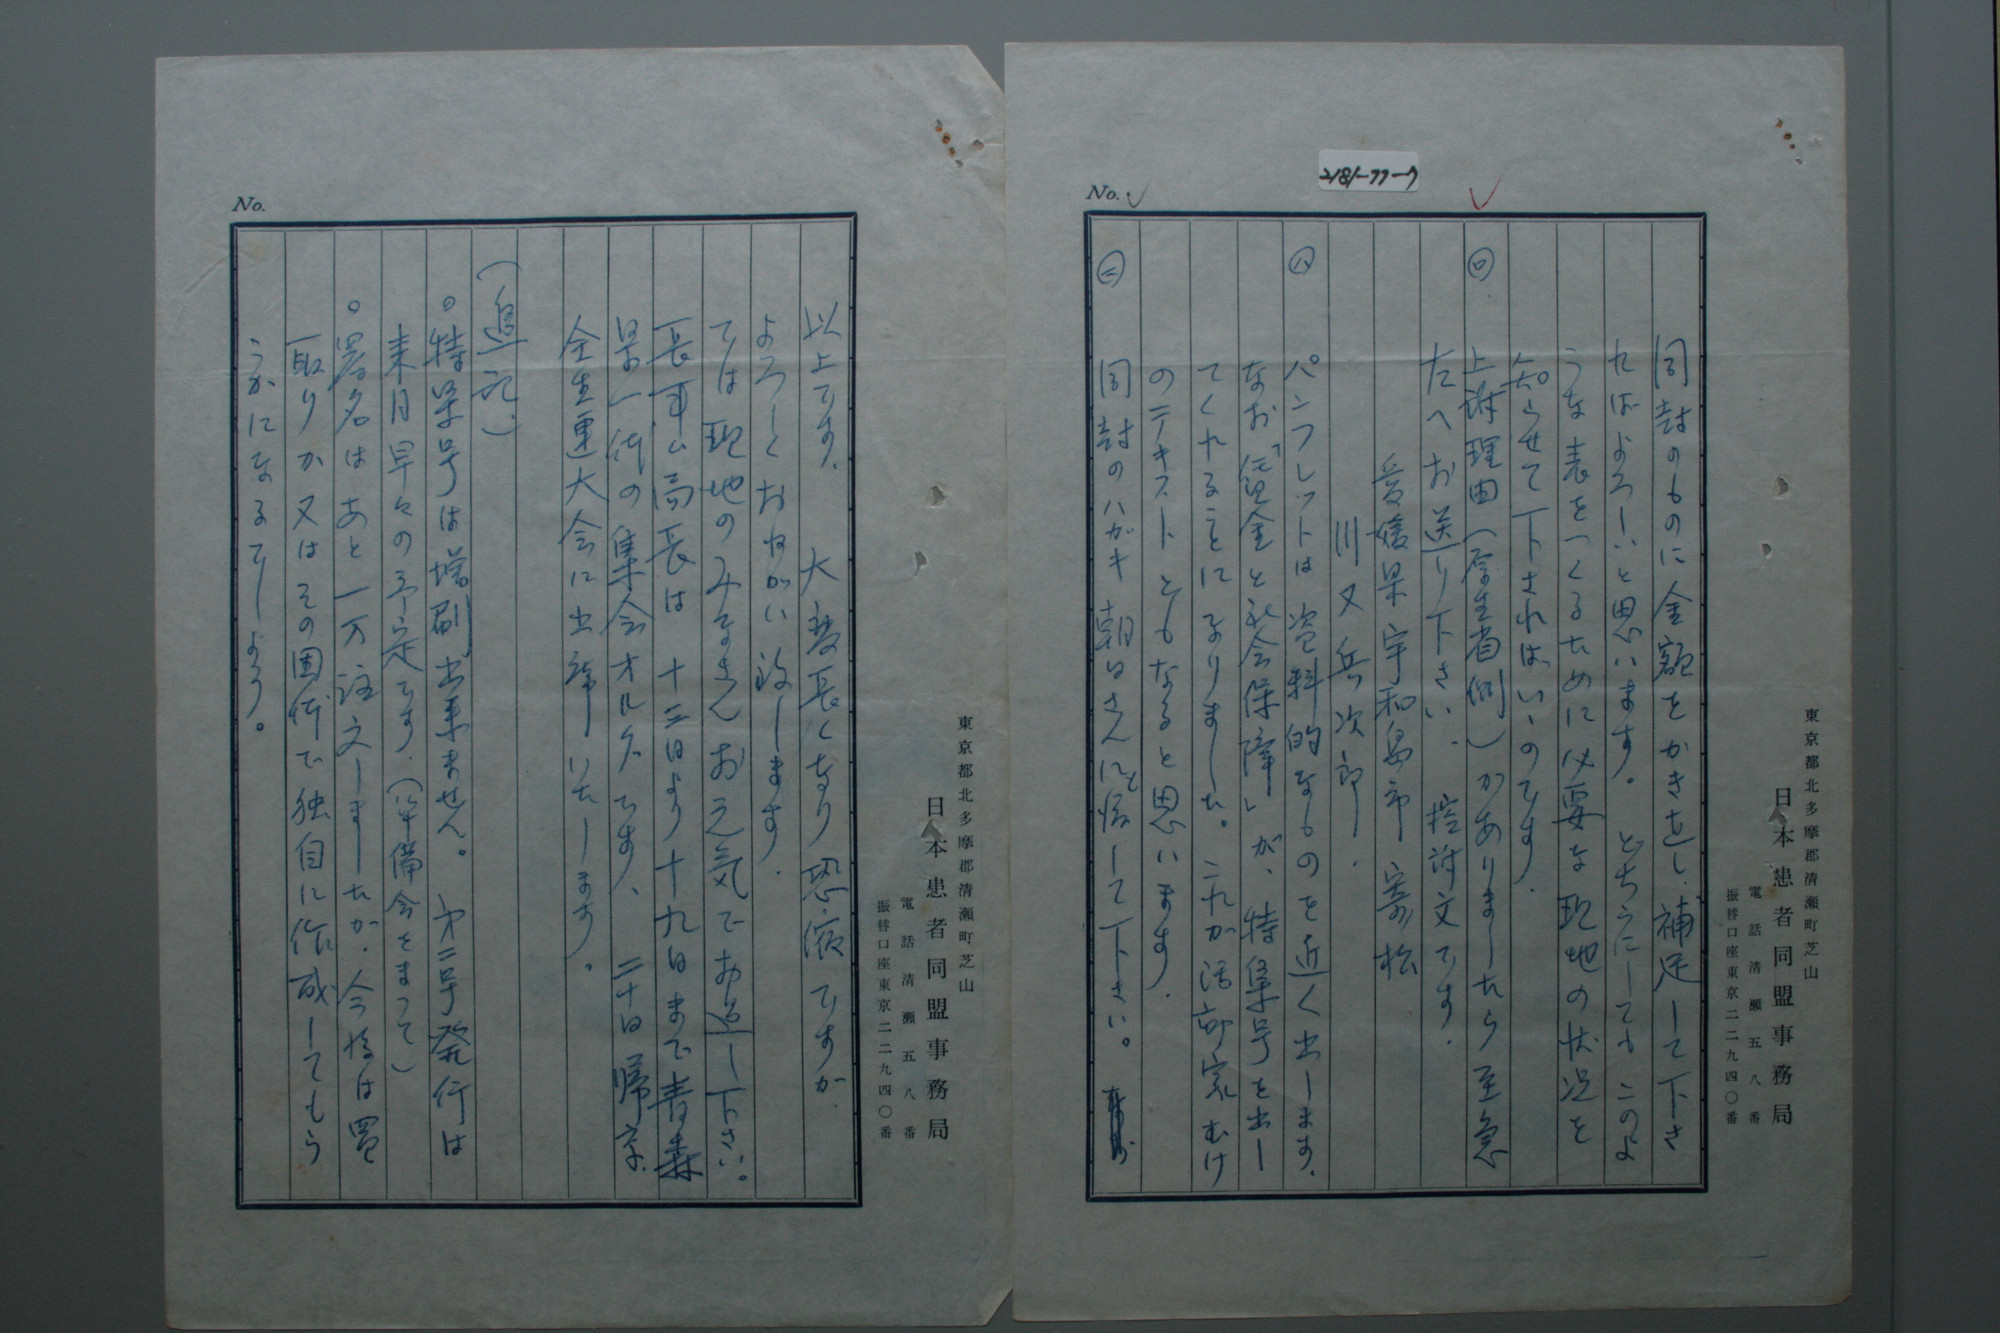 No.
2181-77-7
東京都北多摩郡清瀬町芝山
日本患者同盟事務局
電話清瀬五八番
振替口座東京二二九四〇番
同封のものに金額をかき直し、補足して下さ
ればよろしいと思います。どちらにしてもこのよ
うな表をつくるために必要な現地の状況を
知らせて下さればいゝのです。
㋺ 上訴理由(厚生省側)がありましたら至急
左へお送り下さい、控訴文です。
愛媛県宇和島市寄松
川又兵次郎.
㋩ パンフレットは資料的なものを近く出します。
なお「賃金と社会保障」が、特集号を出し
てくれることになりました。これが活動家むけ
のテキストともなると思います。
㊁ 同封のハガキ朝日さんにと渡して下さい。
No.
東京都北多摩郡清瀬町芝山
日本患者同盟事務局
電話清瀬五八番
振替口座東京二二九四〇番
以上です。 大変長くなり恐縮ですが
よろしくおねがい致します。
では現地のみなさんお元気でお過し下さい。
長 事ム局長は 十三日より十九日まで青森
県一体の集会オルグです、二十日帰京
全生連大会に出席いたします。
(追記)
○特集号は増刷出来ません。 第二号発行は
来月早々の予定です.(準備会をまって)
○署名はあと一万注文しましたが、今後は買
取りか又はその団体で独自に作成してもら
うかになるでしょう。